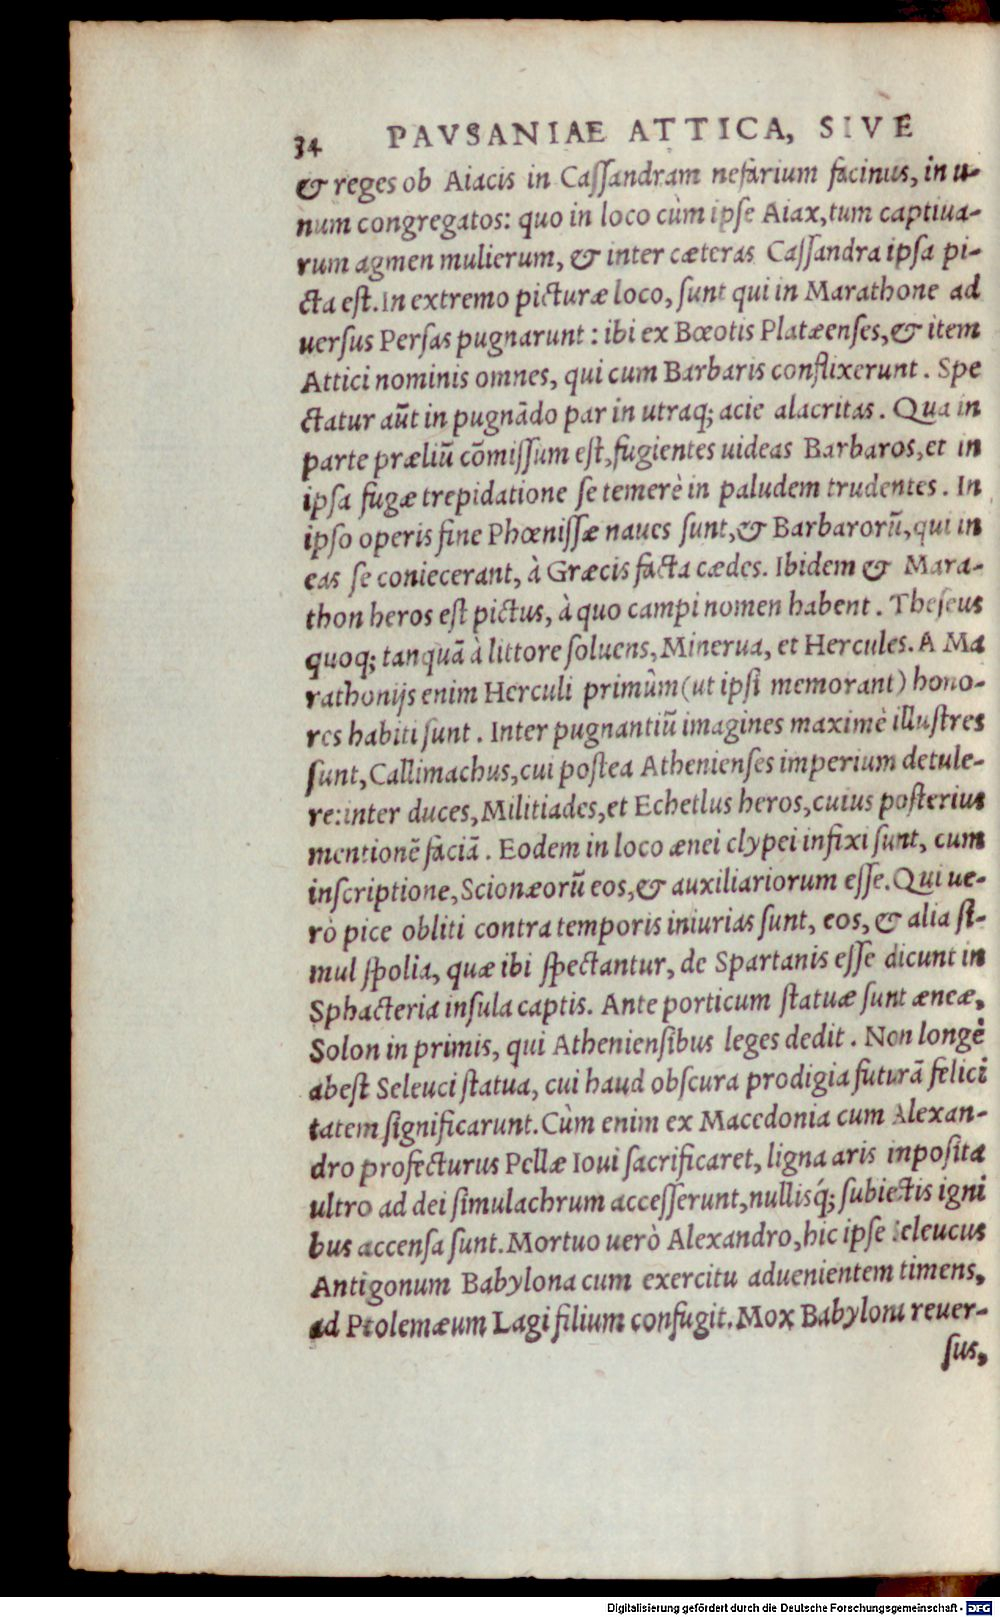 34 PAVSANIAE ATTICA, SIVE
& reges ob Aiacis in Cassandram nefarium facinus, in u-
num congregatos: quo in loco cùm ipse Aiax, tum captiua-
rum agmen mulierum, & inter cæteras Cassandra ipsa pi-
cta est. In extremo picturæ loco, sunt qui in Marathone ad
uersus Persas pugnarunt: ibi ex Bœotis Platæenses, & item
Attici nominis omnes, qui cum Barbaris conflixerunt. Spe
ctatur aũt in pugnãdo par in utraq; acie alacritas. Qua in
parte præliũ cõmissum est, fugientes uideas Barbaros, et in
ipsa fugæ trepidatione se temerè in paludem trudentes. In
ipso operis fine Phœnissæ naues sunt, & Barbarorũ, qui in
eas se coniecerant, à Græcis facta cædes. Ibidem & Mara-
thon heros est pictus, à quo campi nomen habent. Theseus
quoq; tanquã à littore soluens, Minerua, et Hercules. A Ma
rathonijs enim Herculi primùm (ut ipsi memorant) hono-
res habiti sunt. Inter pugnantiũ imagines maximè illustres
sunt, Callimachus, cui postea Athenienses imperium detule-
re: inter duces, Militiades, et Echetlus heros, cuius posterius
mentionẽ faciã. Eodem in loco ænei clypei infixi sunt, cum
inscriptione, Scionæorũ eos, & auxiliariorum esse. Qui ue-
rò pice obliti contra temporis iniurias sunt, eos, & alia si-
mul spolia, quæ ibi spectantur, de Spartanis esse dicunt in
Sphacteria insula captis. Ante porticum statuæ sunt æneæ,
Solon in primis, qui Atheniensibus leges dedit. Non longè
abest Seleuci statua, cui haud obscura prodigia futurã felici
tatem significarunt. Cùm enim ex Macedonia cum Alexan-
dro profecturus Pellæ Ioui sacrificaret, ligna aris inposita
ultro ad dei simulachrum accesserunt, nullisq́; subiectis igni
bus accensa sunt. Mortuo uerò Alexandro, hic ipse Seleucus
Antigonum Babylona cum exercitu aduenientem timens,
ad Ptolemæum Lagi filium confugit. Mox Babylona reuer-
sus,
Digitalisierung gefördert durch die Deutsche Forschungsgemeinschaft - DFG